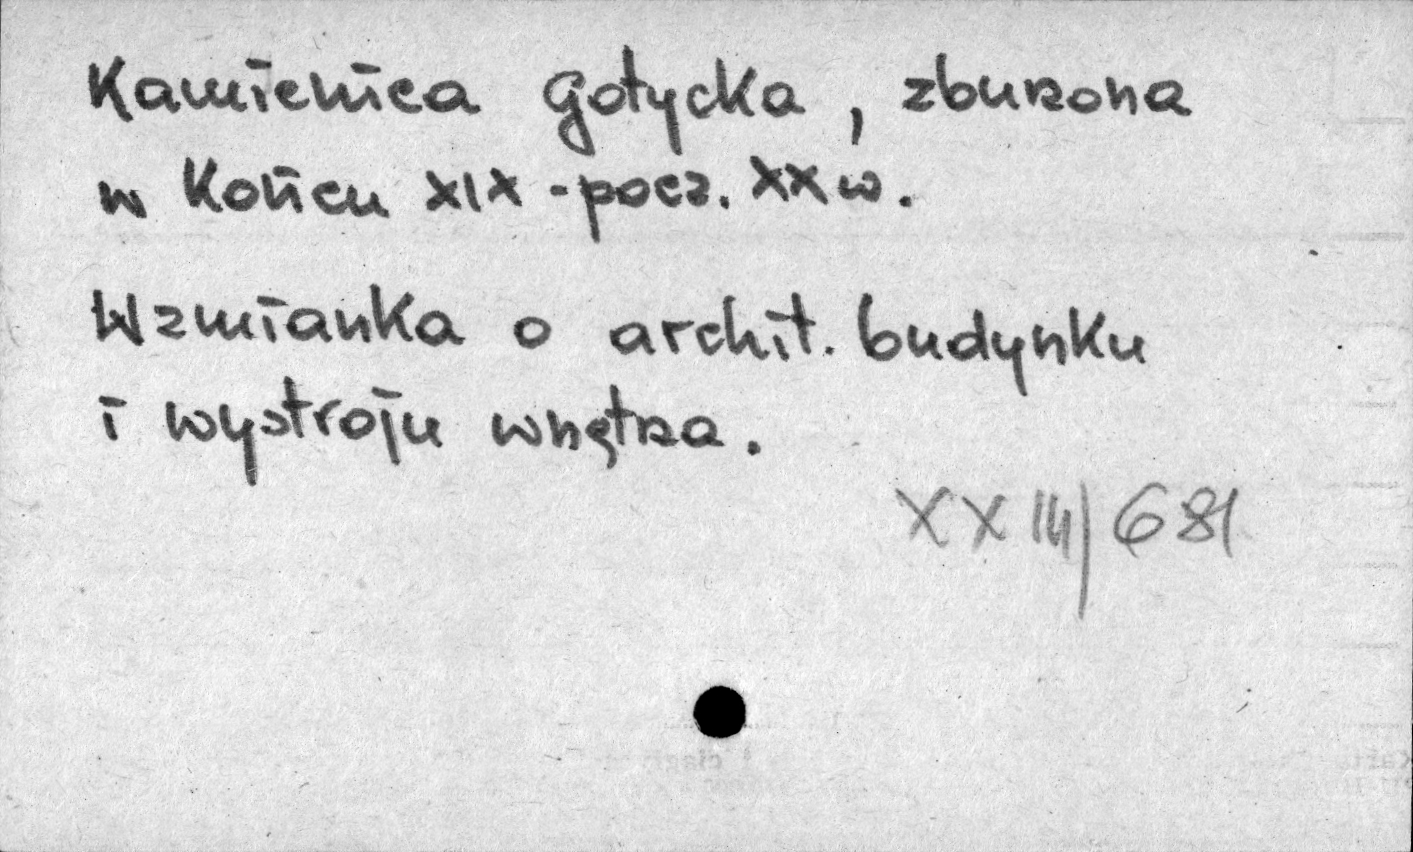 Kamienica gotycka, zburzona
w końcu XIX - pocz. XX w.
Wzmianka o archit. budynku
i wystroju wnętrza.
XXIII/681